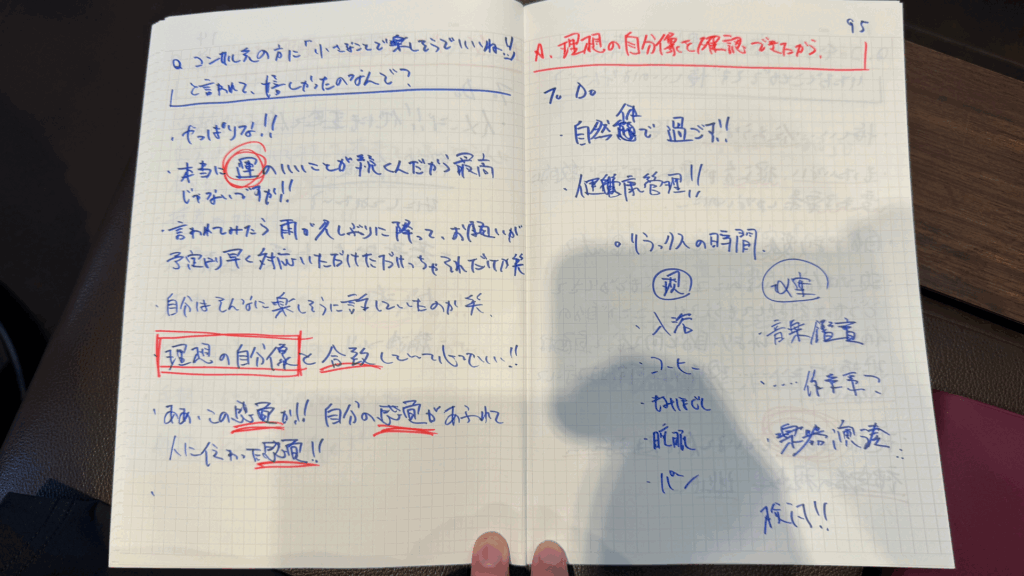 Q コンサル先の方に「小さなことで楽しそうでいいね!!」
と言われて、嬉しかったのなんで?
・やっぱりな!!
・本当に運のいいことが続くんだから最高
じゃないですか!!
・言われてみたら雨が久しぶりに降って、お願いが
予定より早く対応いただけただけっちゃそれだけか笑
・自分はそんなに楽しそうに話していたのか笑.
・理想の自分像と合致していて心地いい!!
・ああ、この感覚か!! 自分の感覚があふれて
人に伝わった感覚!!
95
A. 理想の自分像を確認できたから.
To Do
・自然体で過ごす!!
・健康管理!!
○リラックスの時間.
現
・入浴
・コーヒー
・睡眠
・パン
改善
・音楽鑑賞
・……作業系?
・楽器演奏..
検討!!